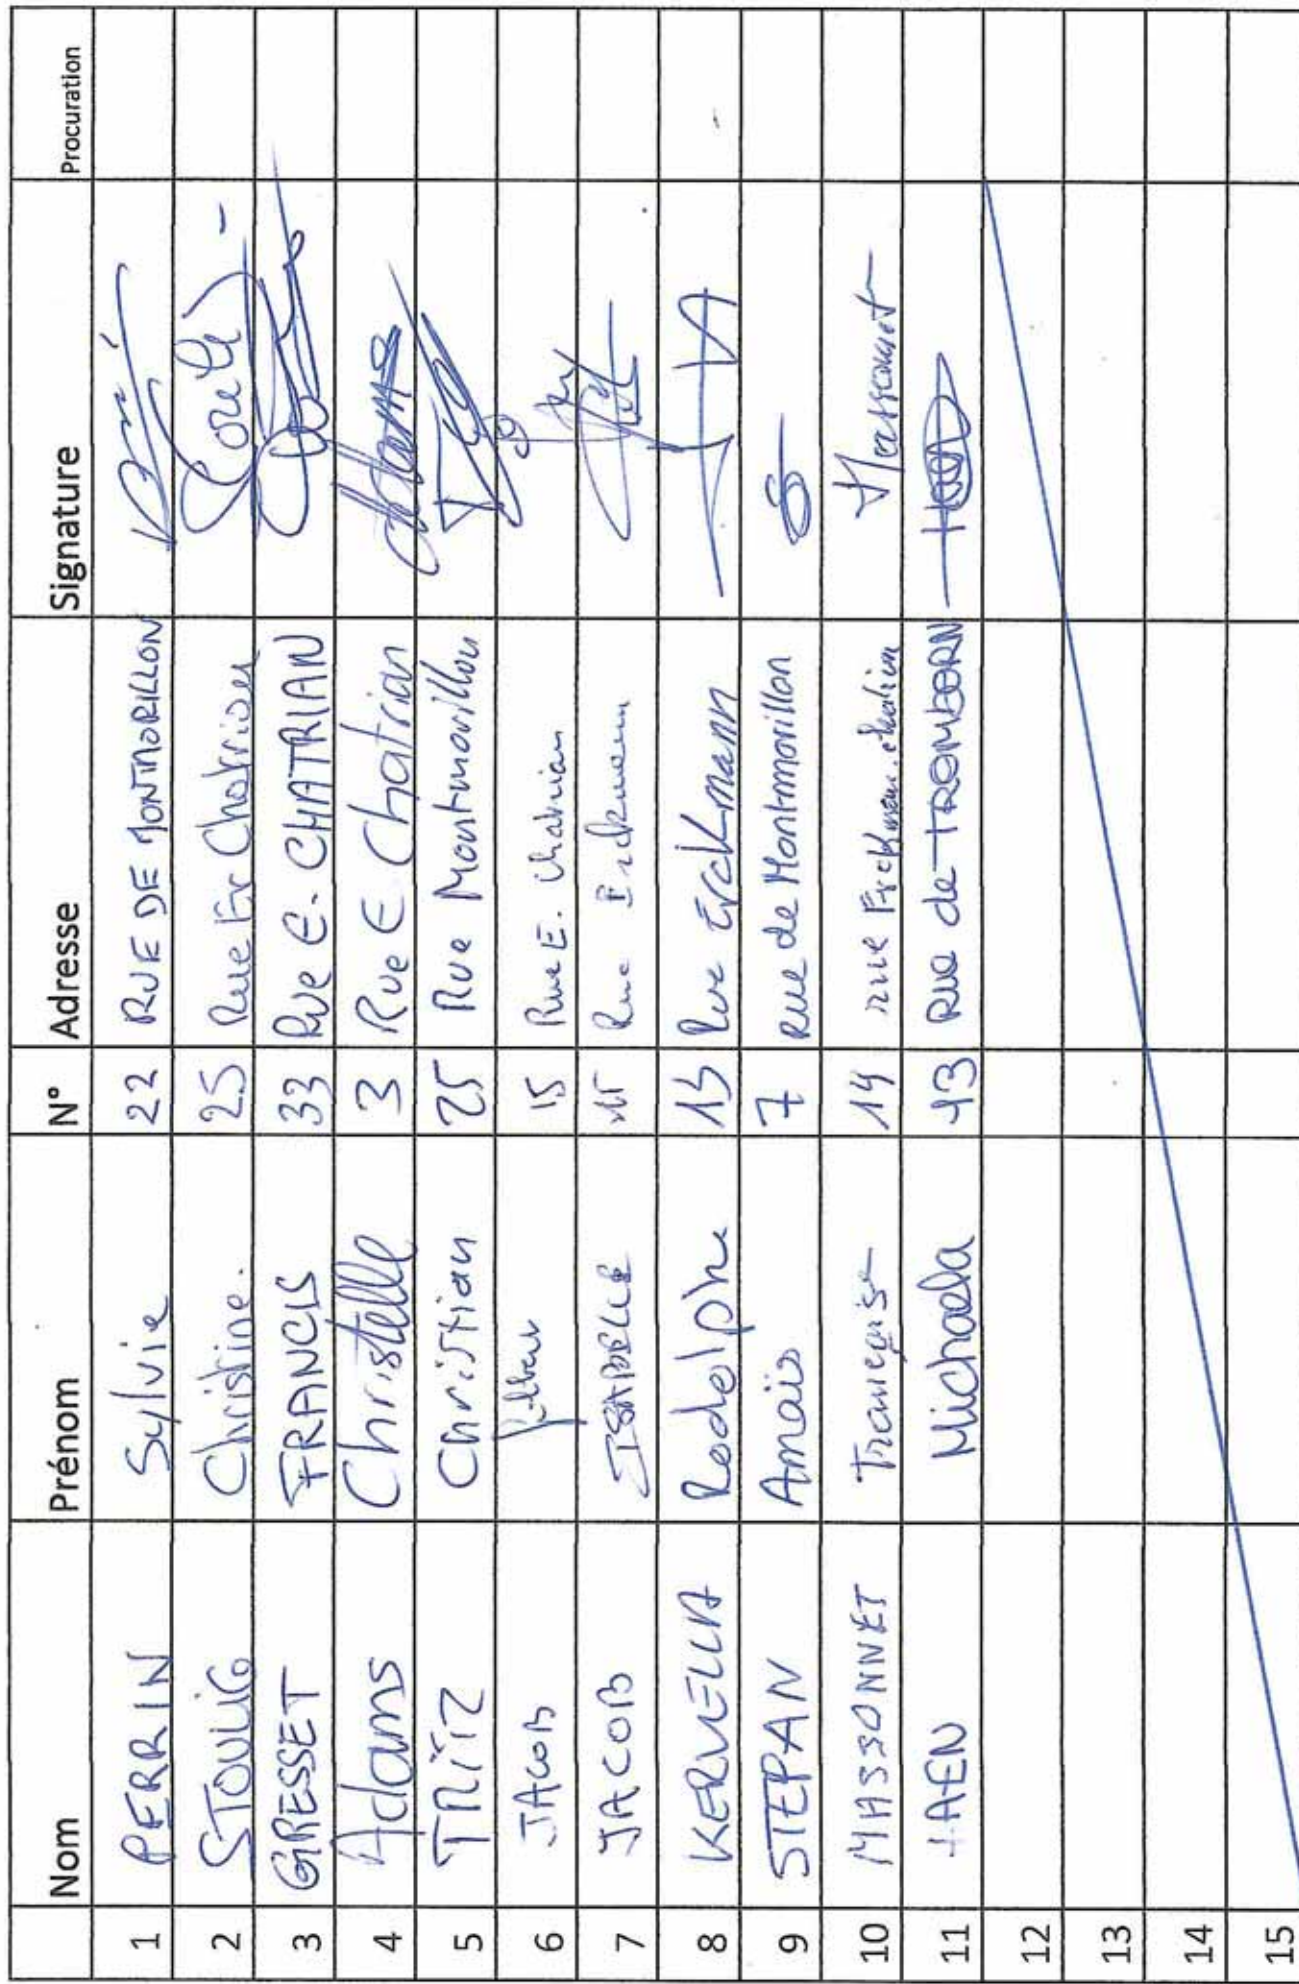 Nom Prénom N° Adresse Signature Procuration
1 PERRIN Sylvie 22 RUE DE MONTMORILLON
2 STOULIG Christine. 25 Rue Er Chatrian
3 GRESSET FRANCIS 33 Rue E. CHATRIAN
4 Adams Christelle 3 Rue E Chatrian Adams
5 Christian 25 Rue Montmorillon
6 JACOB 15 Rue E. Chatrian
7 JACOB ISABELLE 15 Rue Erckmann
8 KERVELLA Rodolphe 15 Rue Erckmann
9 STEPAN Amaïs 7 Rue de Montmorillon
10 MASSONNET Françoise 14 rue Erckmann.chatrian Massonnet
11 HAEN Michaela 13 Rue de TROMBORN
12
13
14
15